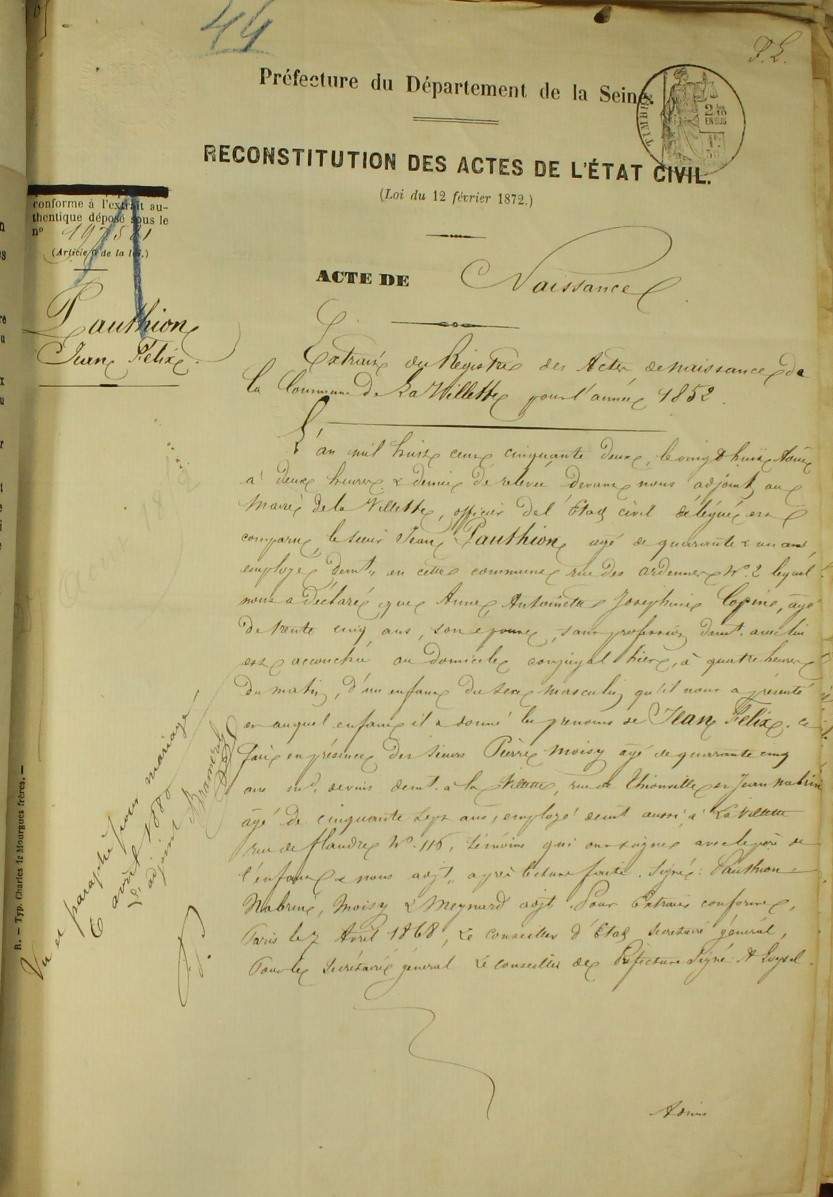 44
F. L.
Préfecture du Département de la Seine.
TIMBRE
2/10 EN SUS
RECONSTITUTION DES ACTES DE L'ÉTAT CIVIL.
(Loi du 12 février 1872.)
conforme à l'extrait au-
thentique déposé sous le
nº
(Article 6 de la loi.)
Pauthion
Jean Félix.
ACTE DE Naissance
Extrait du Registre des Actes de naissance de
la Commune de La Villette pour l'année 1852.
L'an mil huit cent cinquante deux, le vingt huit Août
à deux heures & demie de relevée devant nous adjoint au
Maire de la Villette, officier de l'État civil délégué est
comparu le sieur Jean Pauthion, agé de quarante & un ans
employé, demt. en cette commune rue des ardennes Nº 2 lequel
nous a déclaré que Anne Antoinette Joséphine Lepine, agée
de trente cinq ans, son épouse, sans profession demt. avec lui
est accouchée au domicile conjugal hier, à quatre heures
du matin, d'un enfant du sexe masculin qu'il nous a présenté
et auquel enfant il a donné les prénoms de Jean Félix. ce
fait en présence des sieurs Pierre Moisy agé de quarante cinq
ans md. demt. à la Villette, rue de Thionville et Jean Mabrux
âgé de cinquante sept ans, employé demt aussi à La Villette
rue de flandre Nº 116, témoins qui ont signé avec le père de
l'enfant & nous adjt. après lecture faite. Signé: Pauthion
Mabrux, Moisy & Meynard adjt. Pour Extrait conforme,
Paris le 7 Avril 1868, Le Conseiller d'Etat secrétaire général,
Pour le Secrétaire général Le conseiller de Préfecture Signé A Loysel.
Vu et paraphé pour mariage
6 avril 1880
L'adjoint
R. — Typ. Charles de Mourgues frères. —